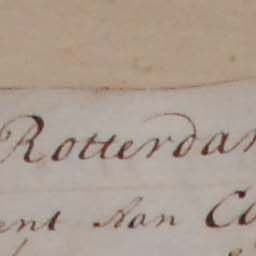 Rotterda
ent Aan Co